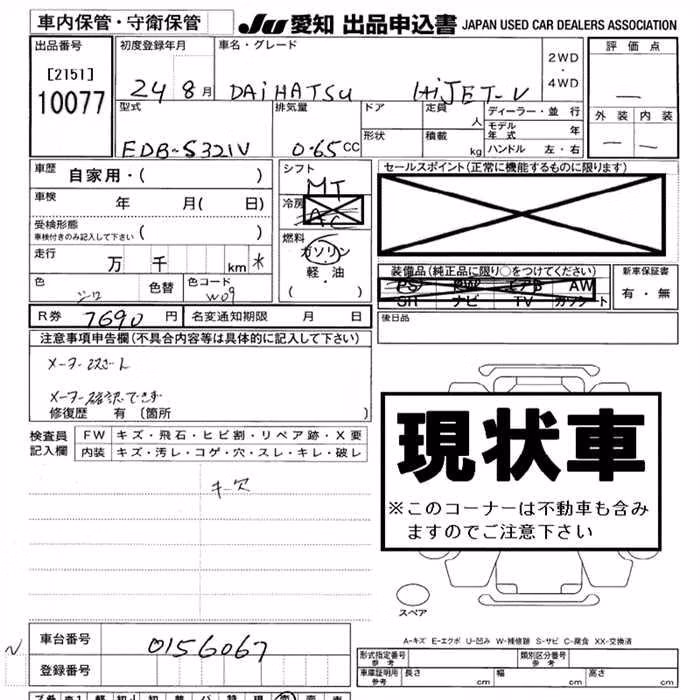 車内保管・守衛保管
JU 愛知 出品申込書 JAPAN USED CAR DEALERS ASSOCIATION
出品番号
[2151]
10077
初度登録年月
24 8 月
車名・グレード
DAIHATSU HIJET-V
2WD
・
4WD
評価点
—
外装 内装
— —
型式
EDB-S321V
排気量
0.65 CC
ドア
形状
定員
人
積載
kg
ディーラー・並行
モデル年式 年
ハンドル 左・右
車歴 自家用・( )
車検 年 月( 日)
受検形態
車検付きのみ記入して下さい ( )
走行 万 千 km *
色 シロ 色替 色コード W09
シフト
MT
冷房
AC
燃料
ガソリン
・
軽油
( )
セールスポイント(正常に機能するものに限ります)
装備品(純正品に限り○をつけてください)
PS PW エアB AW
SR ナビ TV カワシート
新車保証書
有・無
後日品
R券 7690 円 名変通知期限 月 日
注意事項申告欄(不具合内容等は具体的に記入して下さい)
メーター確認できず
修復歴 有 〔箇所 〕
検査員
記入欄
FW キズ・飛石・ヒビ割・リペア跡・X要
内装 キズ・汚レ・コゲ・穴・スレ・キレ・破レ
キー欠
現状車
※このコーナーは不動車も含み
ますのでご注意下さい
スペア
A-キズ E-エクボ U-凹み W-補修跡 S-サビ C-腐食 XX-交換済
N
車台番号 0156067
登録番号
形式指定番号 参考
類別区分番号 参考
車庫証明用 参考
長さ cm 幅 cm 高さ cm